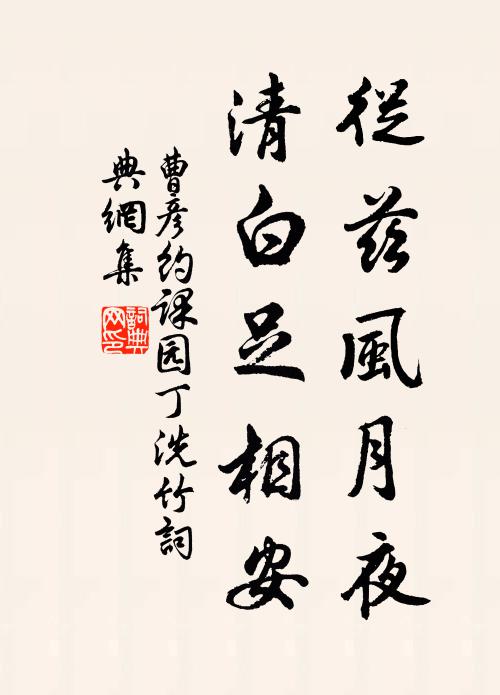 從茲風月夜
清白足相安
曹彦約課园丁洗竹詞
典網集
詞典
网印